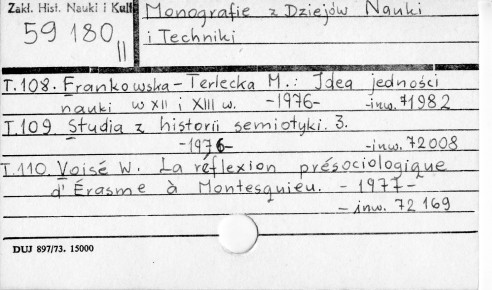 Zakł. Hist. Nauki i Kult
59 180 II
Monografie z Dziejów Nauki
i Techniki
T.108. Frankowska-Terlecka M.: Idea jedności
nauki w XII i XIII w. -1976- -inw. 71982
T.109 Studia z historii semiotyki. 3.
-1976- -inw. 72008
T.110. Voisé W. La réflexion présociologique
d'Érasme à Montesquieu. - 1977-
- inw. 72 169
DUJ 897/73. 15000